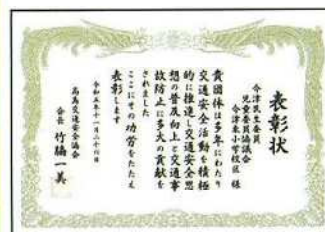 表彰状
今津民生委員
児童委員協議会
今津東小学校区 様
貴団体は多年にわたり
交通安全活動を積極
的に推進し交通安全思
想の普及向上と交通事
故防止に多大の貢献を
されました
ここにその功労をたたえ
表彰します
令和五年十一月二十六日
高島交通安全協会
会長 竹脇一美